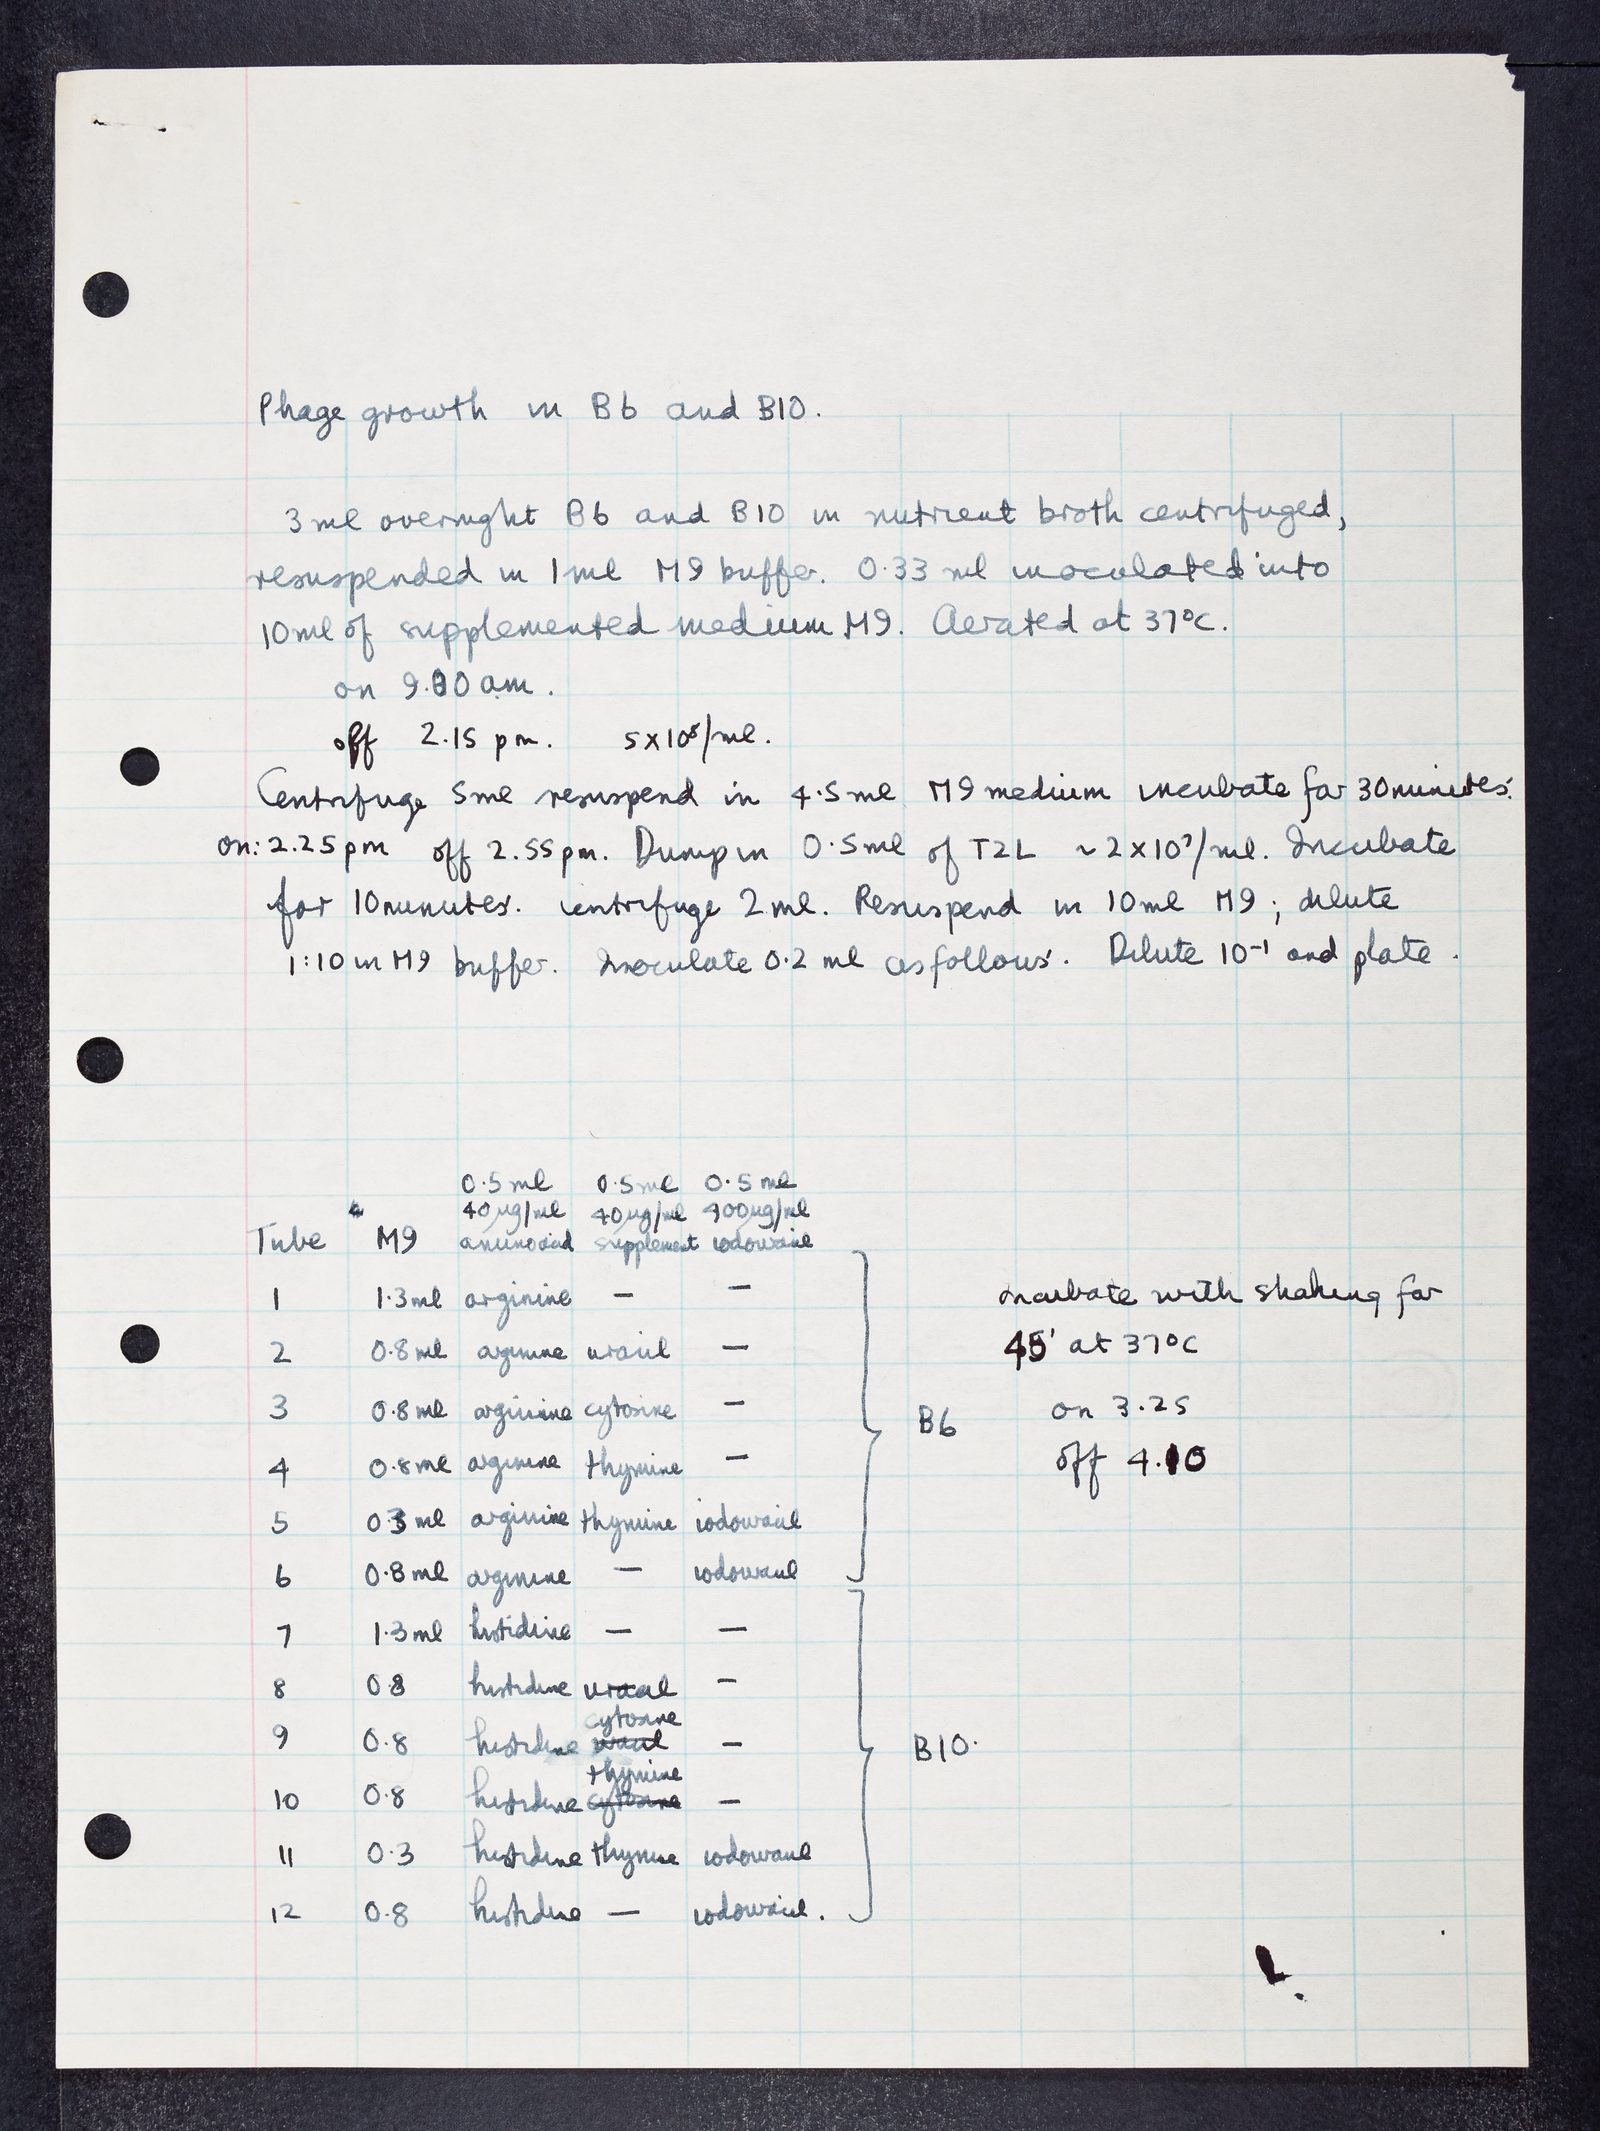 Phage growth in B6 and B10.
3 ml overnight B6 and B10 in nutrient broth centrifuged,
resuspended in 1 ml M9 buffer. 0.33 ml inoculated into
10 ml of supplemented medium M9. Aerated at 37°C.
on 9.00 am.
off 2.15 pm. 5x10⁸/ml.
Centrifuge 5ml resuspend in 4.5 ml M9 medium incubate for 30 minutes.
on: 2.25 pm off 2.55 pm. Dump in 0.5 ml of T2L ~ 2x10⁷/ml. Incubate
for 10 minutes. Centrifuge 2 ml. Resuspend in 10 ml M9; dilute
1:10 in M9 buffer. Inoculate 0.2 ml as follows. Dilute 10⁻¹ and plate.
0.5 ml 0.5 ml 0.5 ml
40 µg/ml 40 µg/ml 400 µg/ml
Tube M9 aminoacid supplement iodouracil
1 1.3 ml arginine — —
2 0.8 ml arginine uracil —
3 0.8 ml arginine cytosine —
4 0.8 ml arginine thymine —
5 0.3 ml arginine thymine iodouracil
6 0.8 ml arginine — iodouracil
B6
Incubate with shaking for
45' at 37°C
on 3.25
off 4.10
7 1.3 ml histidine — —
8 0.8 histidine uracil —
9 0.8 histidine cytosine uracil —
10 0.8 histidine thymine cytosine —
11 0.3 histidine thymine iodouracil
12 0.8 histidine — iodouracil.
B10.